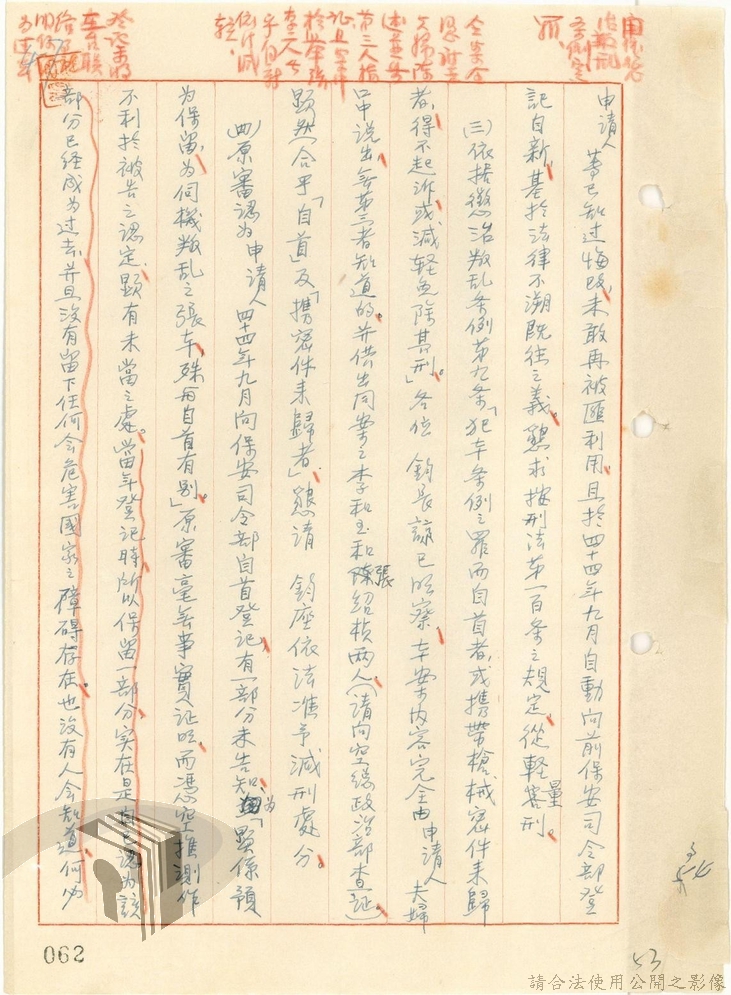 申請人等已知过悔改,未敢再被匪利用,且於四十四年九月自動向前保安司令部登
記自新,基於法律不溯既往之義,懇求按刑法第一百条之規定,從輕量刑。
(三)依据懲治叛乱条例第九条「犯本条例之罪而自首者,或携帶槍械密件来歸
者,得不起诉或减輕免除其刑。」各位 鈞長諒已明察,本案內容完全由申請人夫婦
口中说出,無第三者知道的,并供出同案之李和玉和張绍桢两人(請向空總政治部查証)
顕然合乎「自首」及「携密件来歸者」,懇請 鈞座依法准予减刑處分。
(四)原審認为申請人四十四年九月向保安司令部自首登记,有一部分未告知,为「顕係預
为保留,为伺機叛乱之張本,殊与自首有别。」原審毫無事實证明,而凭空推測作
不利於被告之認定,顕有未當之處。當年登记時所以保留一部分,实在是自己認为該
部分已经成为过去,并且没有留下任何会危害國家之障碍存在,也没有人会知道,何必
062
53
請合法使用公開之影像